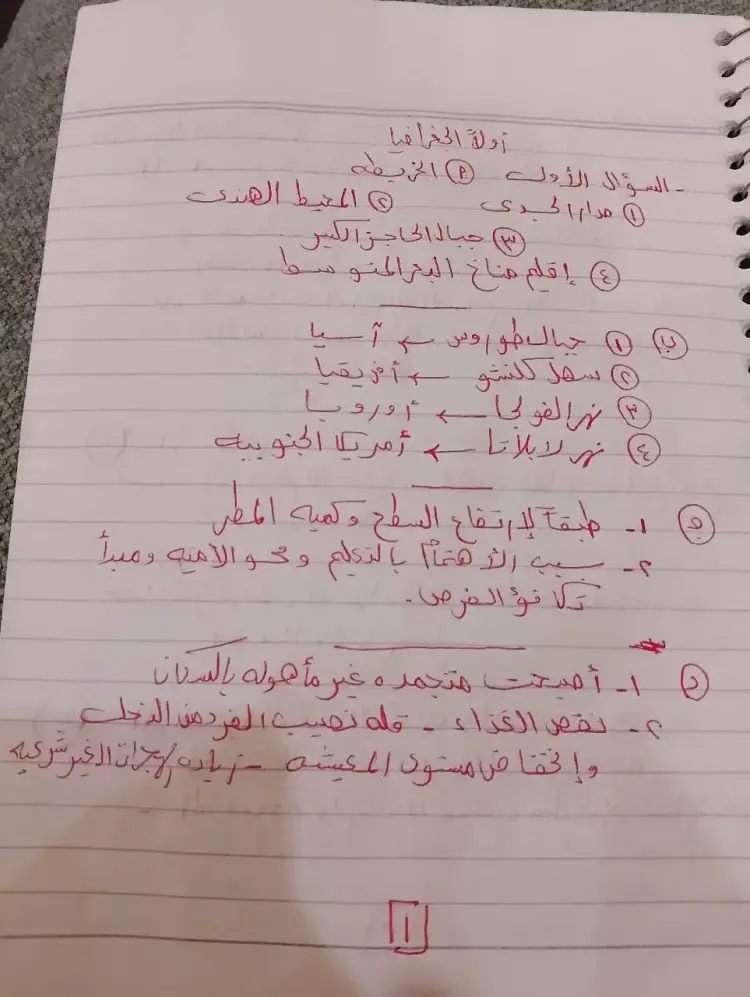 أولاً الجغرافيا
- السؤال الأول (P) الخريطه
(١) مدار الجدى (٢) المحيط الهندى
(٣) جبال الحاجز الكبير
(٤) إقليم مناخ البحر المتوسط
(ب) (١) جبال طوروس ← آسيا
(٢) سهل ← أفريقيا
(٣) نهر الفولجا ← أوروبا
(٤) نهر لابلاتا ← أمريكا الجنوبيه
(ج) ١- طبقاً لإرتفاع السطح وكميه المطر
٢- سبب الأهتمام بالتعليم ومحو الأميه ومبدأ
تكافؤ الفرص.
(د) ١- أصبحت متجمده غير مأهوله بالسكان
٢- نقص الغذاء - قله نصيب الفرد من الدخل
وإنخفاض مستوى المعيشه - زياده الهجرات الغير شرعيه
١